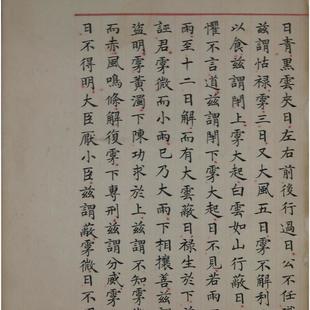 日青黑雲夾日左右前後行過日公不任職
茲謂怙祿霿三日又大風五日霿不解利
以食茲謂閉上霿大起白雲如山行蔽日
懼不言道茲謂閉下霿大起日不見若雨
雨至十二日解而有大雲蔽日祿生於下
誣君霿微而小雨已乃大雨下相攘善茲
盜明霿黃濁下陳功求於上茲謂不知霿
而赤風鳴條解復霿下專刑茲謂分威霿
日不得明大臣厭小臣茲謂蔽霿微日不